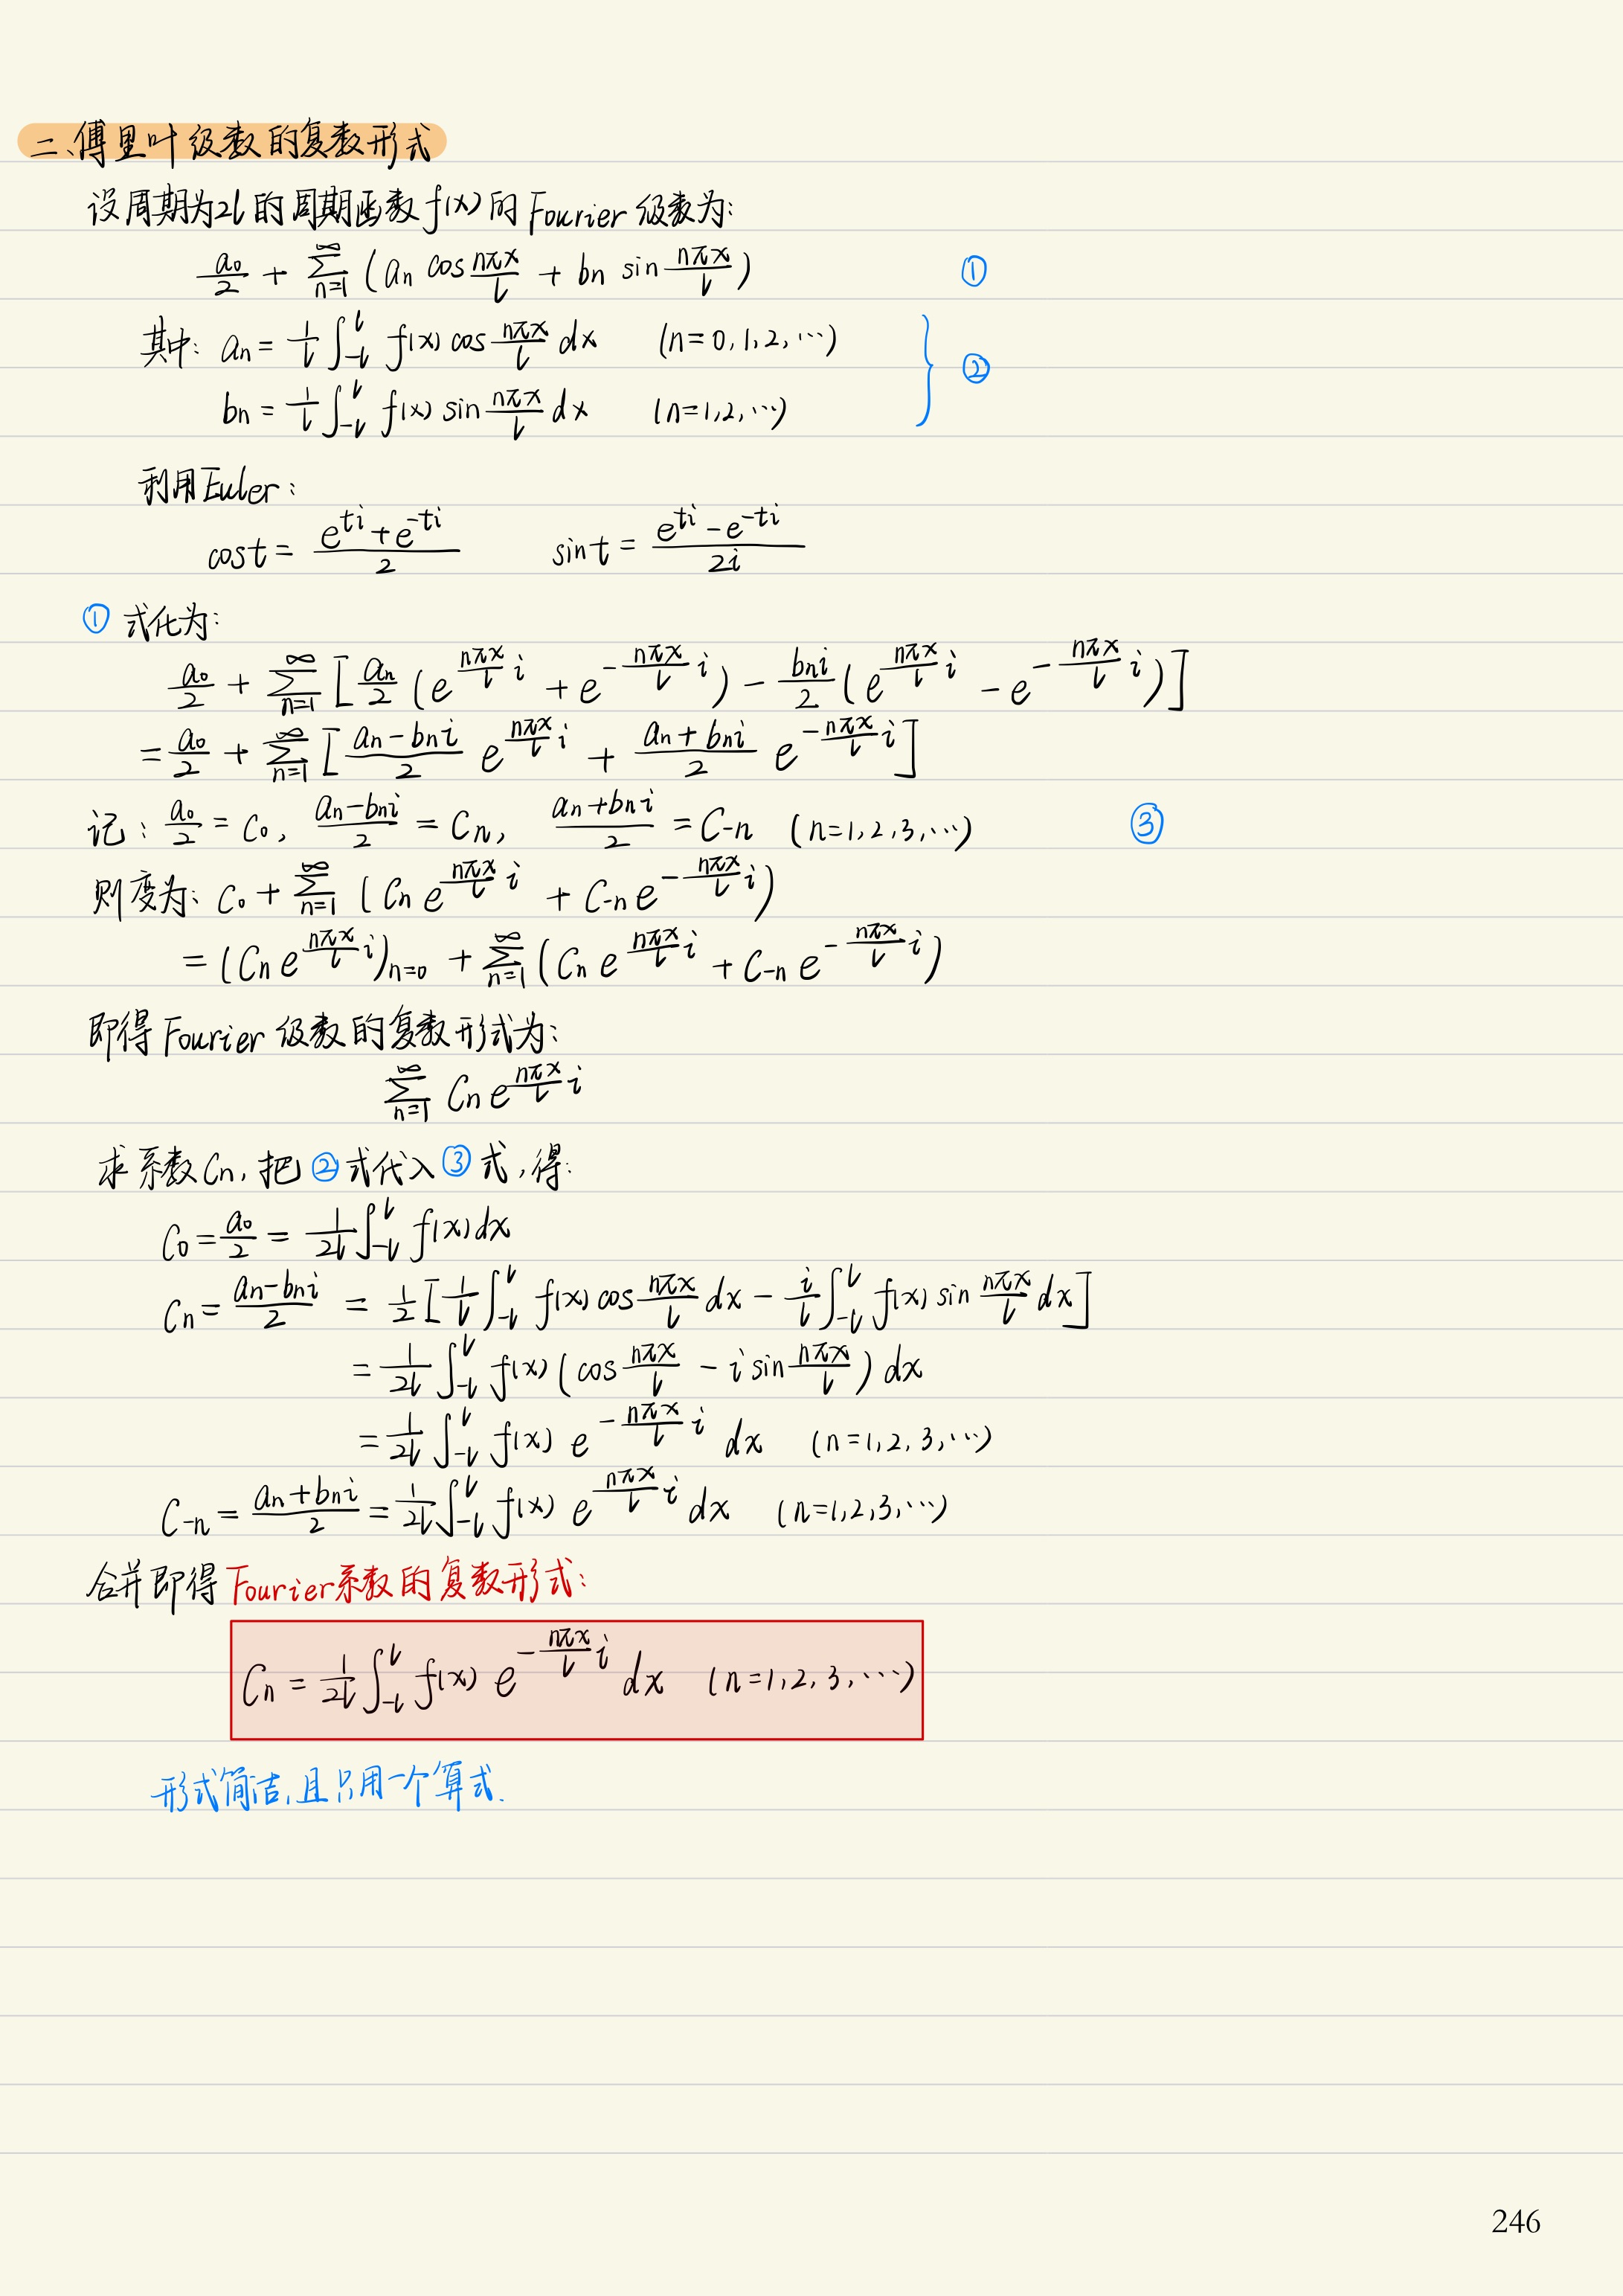 二、傅里叶级数的复数形式
设周期为2l的周期函数f(x)的Fourier级数为:
$\frac{a_0}{2} + \sum_{n=1}^{\infty} (a_n \cos\frac{n\pi x}{l} + b_n \sin\frac{n\pi x}{l})$ ①
其中: $a_n = \frac{1}{l}\int_{-l}^{l} f(x) \cos\frac{n\pi x}{l} dx$ (n=0,1,2,⋯)
$b_n = \frac{1}{l}\int_{-l}^{l} f(x) \sin\frac{n\pi x}{l} dx$ (n=1,2,⋯) ②
利用Euler:
$\cos t = \frac{e^{ti}+e^{-ti}}{2}$ $\sin t = \frac{e^{ti}-e^{-ti}}{2i}$
①式化为:
$\frac{a_0}{2} + \sum_{n=1}^{\infty} [\frac{a_n}{2}(e^{\frac{n\pi x}{l}i} + e^{-\frac{n\pi x}{l}i}) - \frac{b_n i}{2}(e^{\frac{n\pi x}{l}i} - e^{-\frac{n\pi x}{l}i})]$
$= \frac{a_0}{2} + \sum_{n=1}^{\infty} [\frac{a_n-b_n i}{2} e^{\frac{n\pi x}{l}i} + \frac{a_n+b_n i}{2} e^{-\frac{n\pi x}{l}i}]$
记: $\frac{a_0}{2} = C_0, \frac{a_n-b_n i}{2} = C_n, \frac{a_n+b_n i}{2} = C_{-n}$ (n=1,2,3,⋯) ③
则度为: $C_0 + \sum_{n=1}^{\infty} (C_n e^{\frac{n\pi x}{l}i} + C_{-n} e^{-\frac{n\pi x}{l}i})$
$= (C_n e^{\frac{n\pi x}{l}i})_{n=0} + \sum_{n=1}^{\infty} (C_n e^{\frac{n\pi x}{l}i} + C_{-n} e^{-\frac{n\pi x}{l}i})$
即得Fourier级数的复数形式为:
$\sum_{n=1}^{\infty} C_n e^{\frac{n\pi x}{l}i}$
求系数Cn,把②式代入③式,得:
$C_0 = \frac{a_0}{2} = \frac{1}{2l}\int_{-l}^{l} f(x)dx$
$C_n = \frac{a_n-b_n i}{2} = \frac{1}{2}[\frac{1}{l}\int_{-l}^{l} f(x)\cos\frac{n\pi x}{l} dx - \frac{i}{l}\int_{-l}^{l} f(x)\sin\frac{n\pi x}{l} dx]$
$= \frac{1}{2l}\int_{-l}^{l} f(x)(\cos\frac{n\pi x}{l} - i\sin\frac{n\pi x}{l}) dx$
$= \frac{1}{2l}\int_{-l}^{l} f(x) e^{-\frac{n\pi x}{l}i} dx$ (n=1,2,3,⋯)
$C_{-n} = \frac{a_n+b_n i}{2} = \frac{1}{2l}\int_{-l}^{l} f(x) e^{\frac{n\pi x}{l}i} dx$ (n=1,2,3,⋯)
合并即得Fourier系数的复数形式:
$C_n = \frac{1}{2l}\int_{-l}^{l} f(x) e^{-\frac{n\pi x}{l}i} dx$ (n=1,2,3,⋯)
形式简洁,且只用一个算式.
246